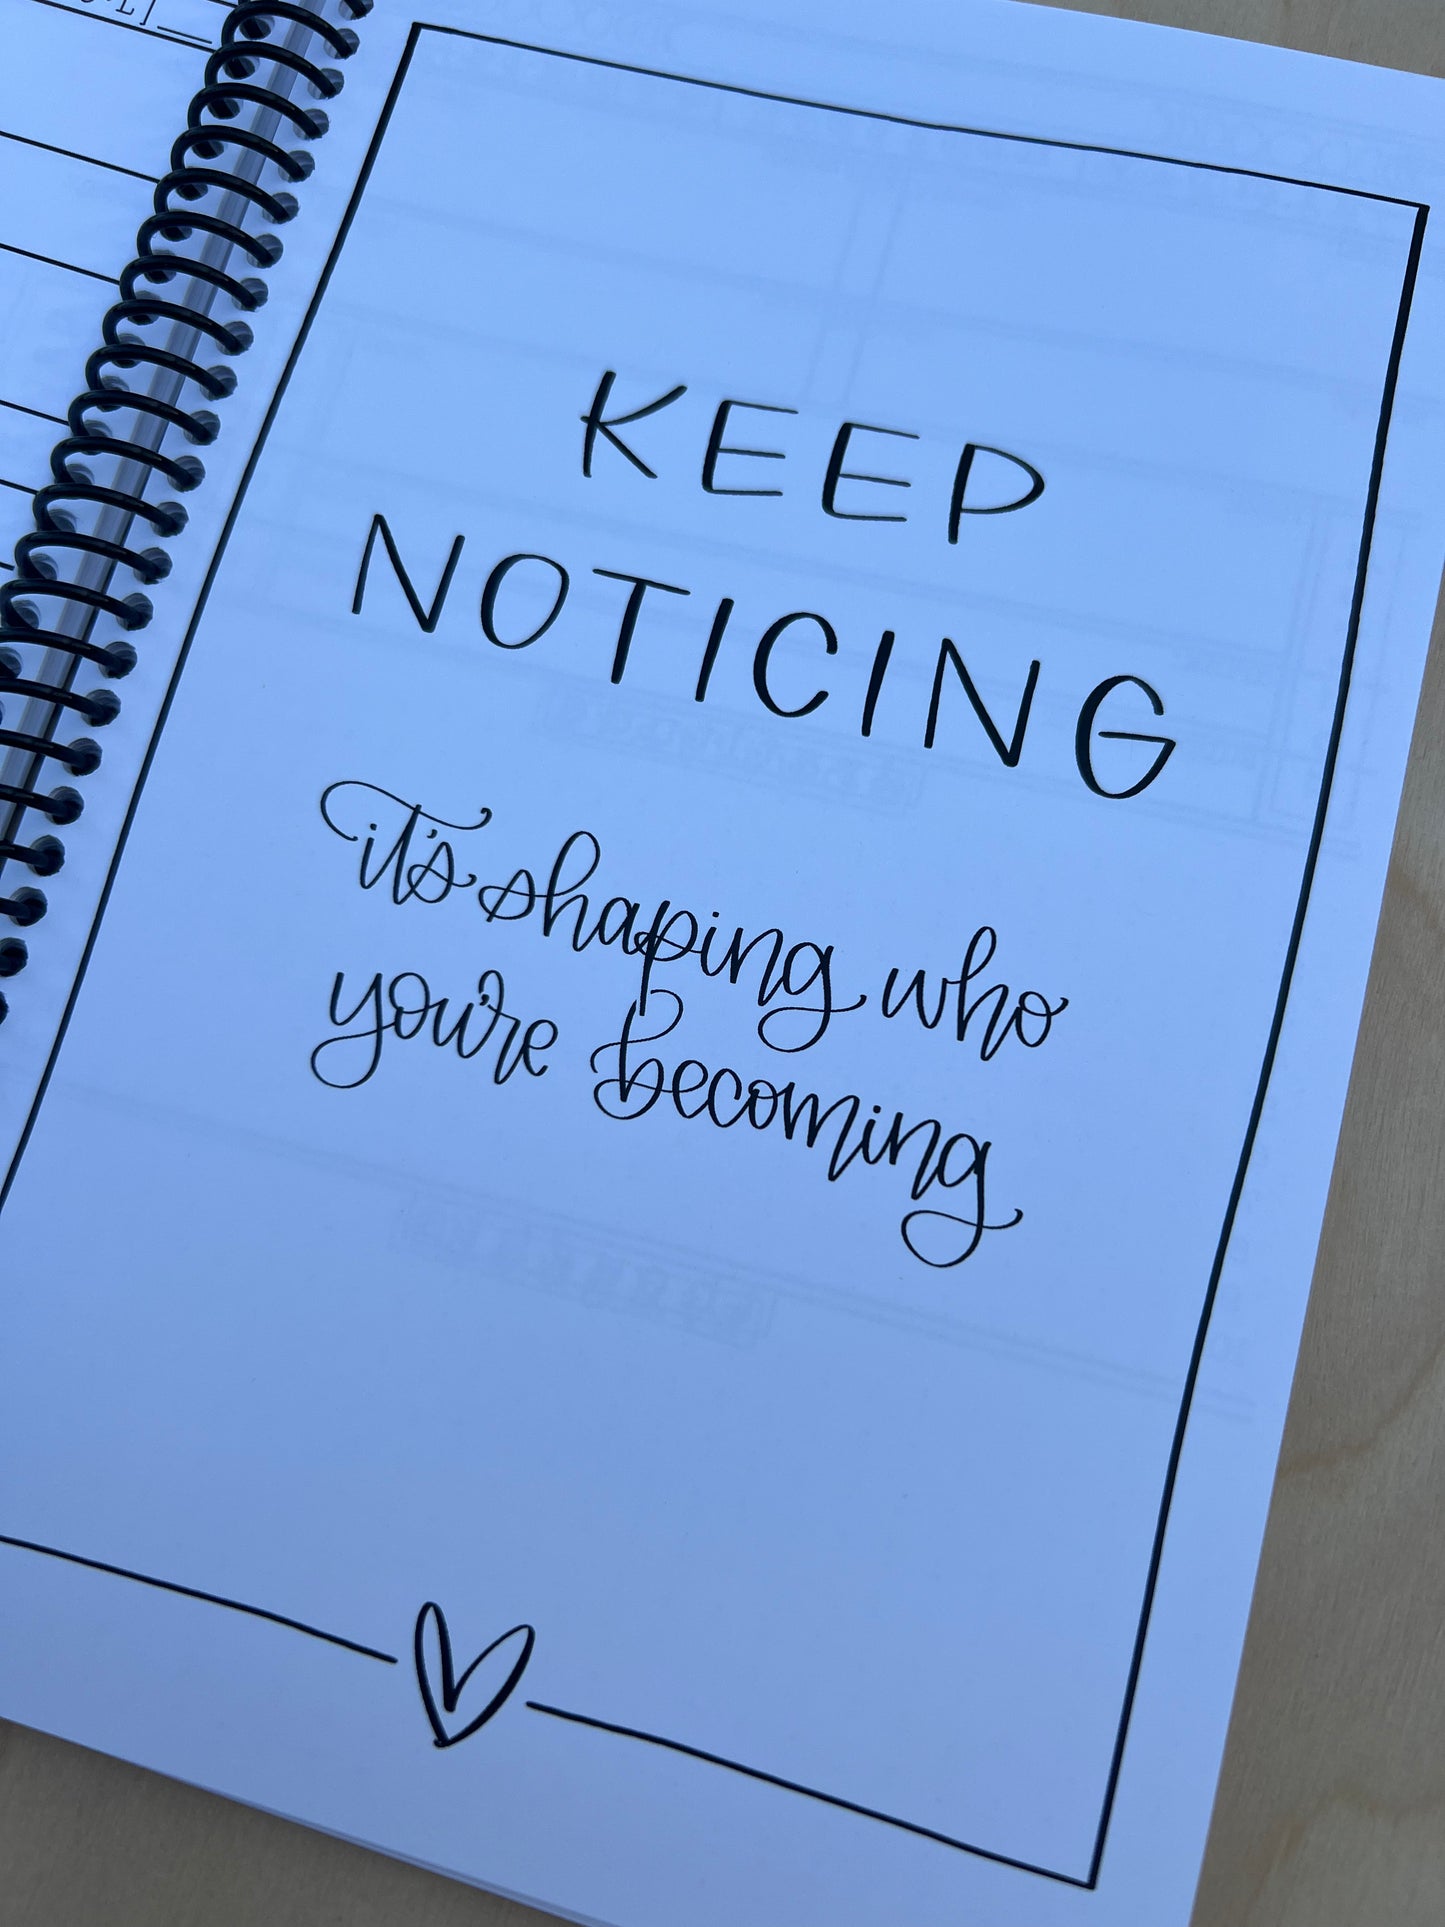 KEEP
NOTICING
it's shaping who
you're becoming